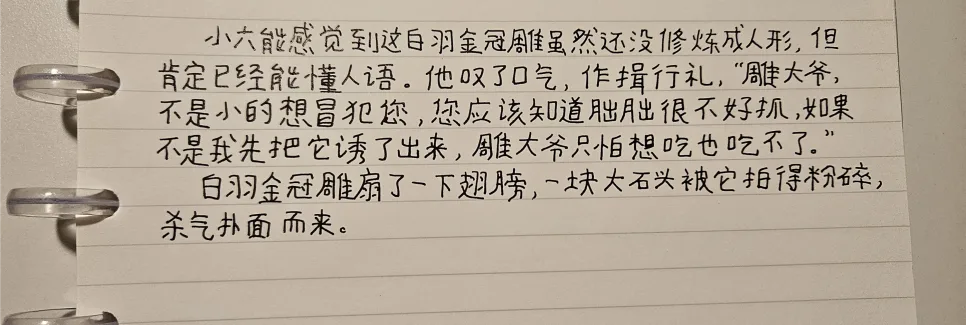 小六能感觉到这白羽金冠雕虽然还没修炼成人形，但
肯定已经能懂人语。他叹了口气，作揖行礼，“雕大爷，
不是小的想冒犯您，您应该知道朏朏很不好抓，如果
不是我先把它诱了出来，雕大爷只怕想吃也吃不了。”
白羽金冠雕扇了一下翅膀，一块大石头被它拍得粉碎，
杀气扑面而来。